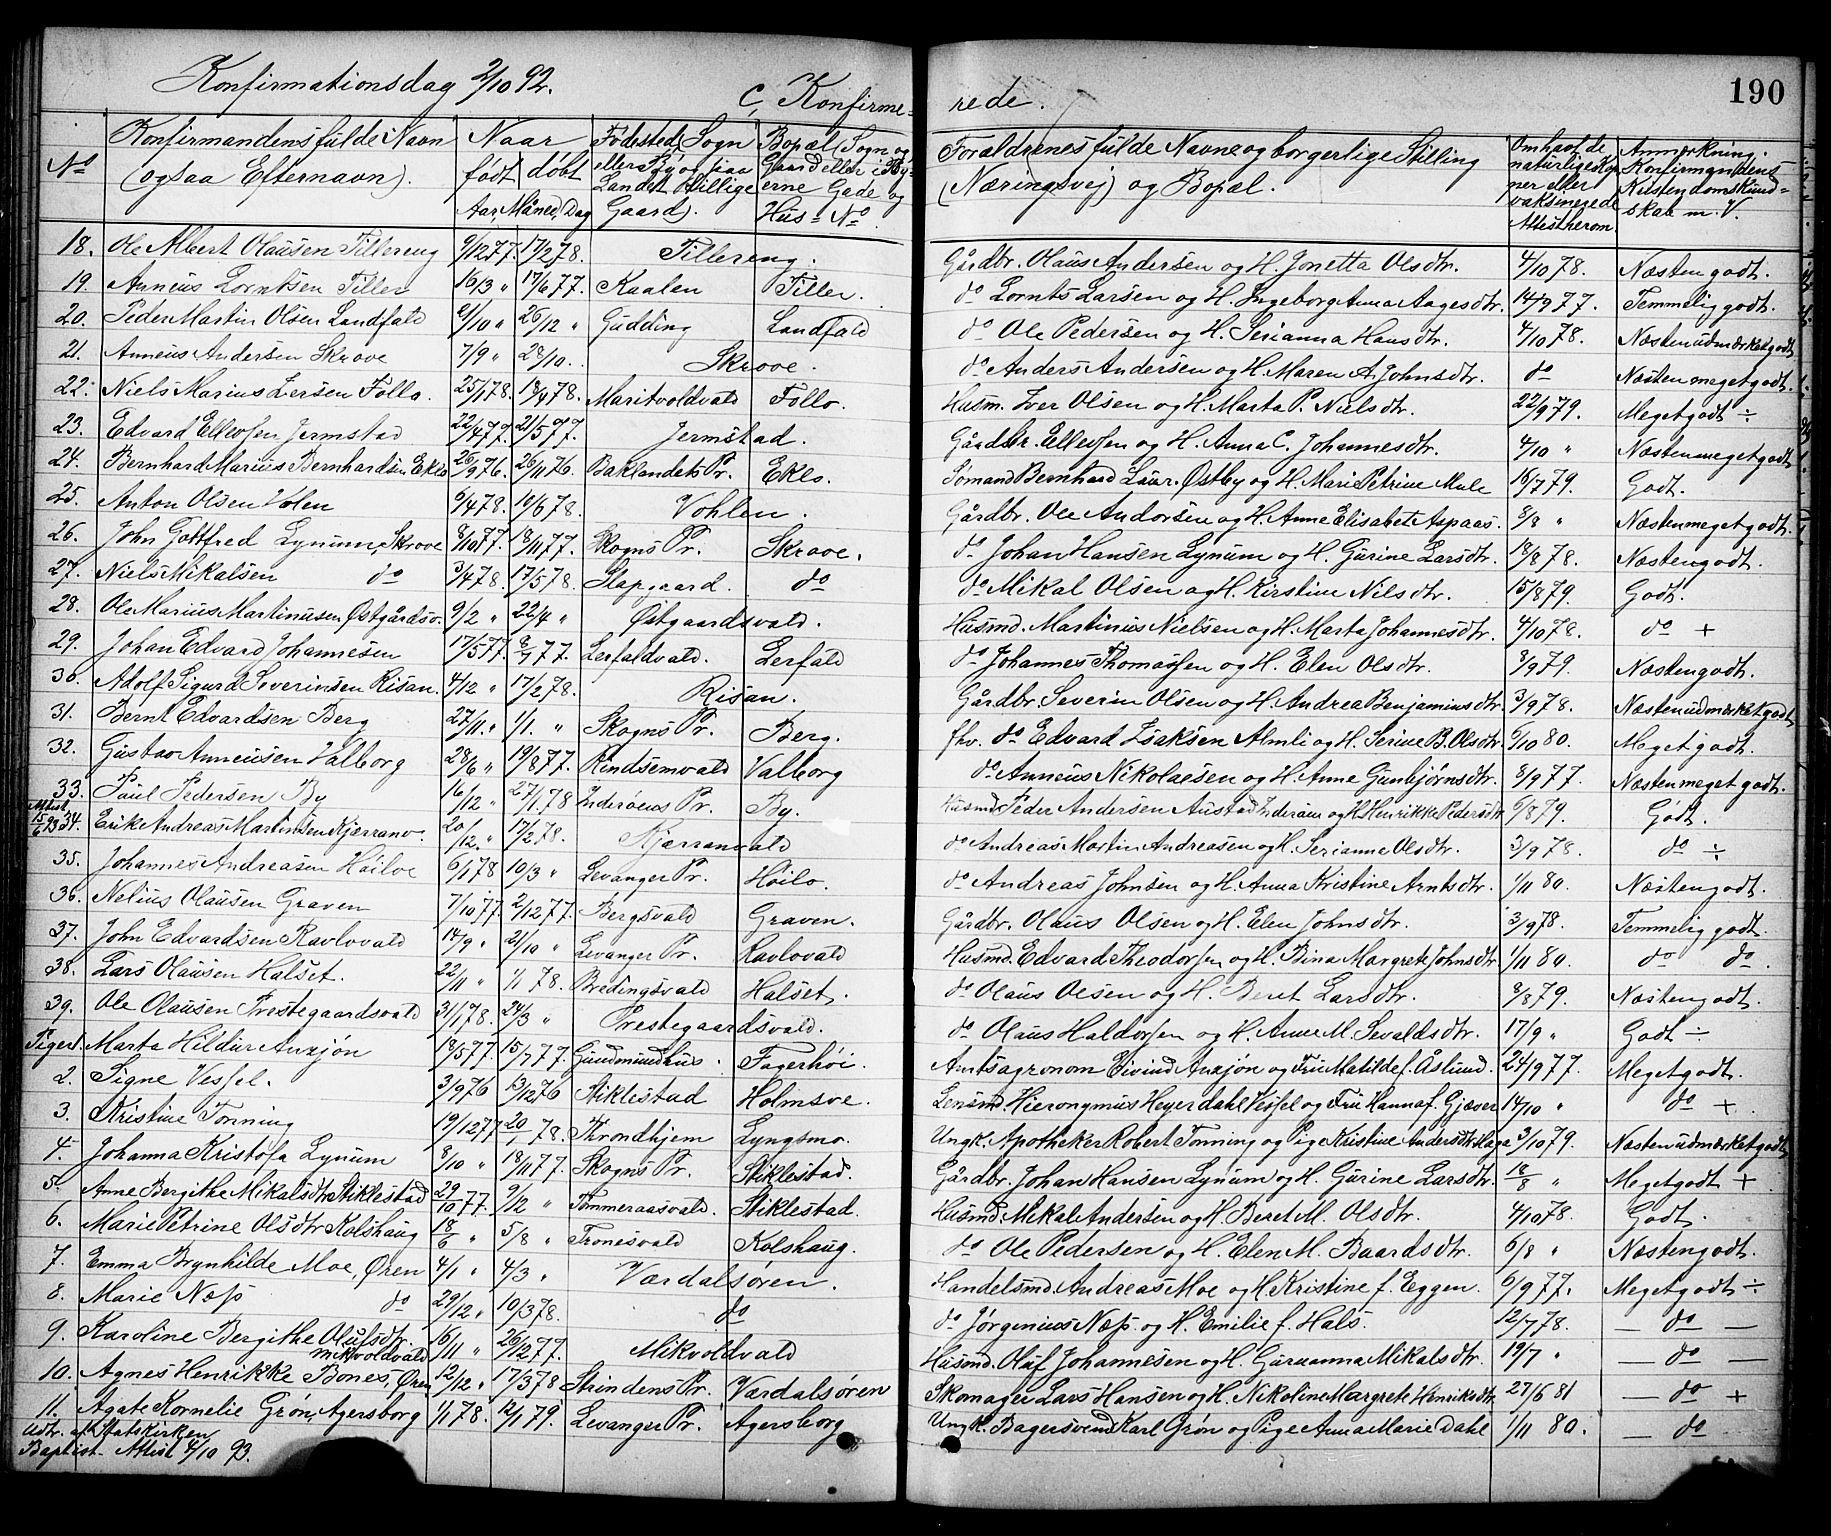 190
Konfirmationsdag 2/10 92.
C, Konfirme= rede.
No
Konfirmandens fulde Navn (ogsaa Efternavn).
Naar født døbt Aar, Måned, Dag
Fødested, Sogn eller By og paa Landet tillige Gaard).
Bopæl (Sogn og Gaard eller i Byerne Gade og Hus=No
Forældrenes fulde Navne og borgerlige Stilling (Næringsvej) og Bopæl.
Om havt de naturlige Kopper eller vaksinerede Attest herom
Anmerkning. Konfirmandens Kristendomskund=skab m. V.
18. Ole Albert Olausen Tillereng 9/12 77. 17/2 78. Tillereng. Gårdbr. Olaus Andersen og H. Jonetta Olsdtr. 4/10 78. Næsten godt.
19. Anneus Lorntsen Tiller 16/3 " 17/6 77. Kaalen Tiller. do Lornts Larsen og H. Ingeborg Anna Aagesdtr. 14/9 77. Temmelig godt.
20. Peder Martin Olsen Landfald 9/10 " 26/12 " Gudding Landfald do Ole Pedersen og H. Serianna Hansdtr. 4/10 78. Næsten udmærket godt
21. Anneus Andersen Skrove 7/9 " 28/10. Skrove. do Anders Andersen og H. Maren A. Johnsdtr. do Næsten meget godt.
22. Niels Marius Iversen Follo. 25/1 78. 18/4 78. Maritvoldvald Follo. Husm. Iver Olsen og H. Marta P. Nielsdtr. 22/9 79. Meget godt ÷
23. Edvard Ellevsen Jermstad 22/4 77. 21/5 77. Jermstad. Gårdbr. Ellevsen og H. Anna C. Johannesdtr. 4/10 " Næsten meget godt
24. Bernhard Marius Bernhardsen Eklo 26/9 76. 26/11 76. Baklandets Pr. Eklo. Sømand Bernhard Laur. Østby og H. Marie Petrine Mule 16/7 79. Godt.
25. Anton Olsen Volen 6/4 78. 10/6 78. Vohlen. Gårdbr. Ole Andorsen og H. Anne Elisabet Aspaas. 8/8 " Næsten meget godt.
26. John Gottfred Lynum, Skrove 8/10 77. 18/11 77. Skogns Pr. Skrove. do Johan Hansen Lynum og H. Gurine Larsdtr. 18/8 78. Næsten godt.
27. Niels Mikalsen do 3/4 78. 17/5 78. Slapgaard. do do Mikal Olsen og H. Kirstine Nilsdtr. 15/8 79. Godt.
28. Ole Marius Martinusen, Østgårdsv. 9/2 " 22/4 " Østgaardsvald. Husmd. Martinus Nielsen og H. Marta Johannesdtr. 4/10 78. do +
29. Johan Edvard Johannesen 17/5 77. 8/7 77. Lerfaldvald. Lerfald do Johannes Thomassen og H. Elen Olsdtr. 8/9 79. Næsten godt.
30. Adolf Sigurd Severinsen Risan. 4/12 " 17/2 78. Risan. Gårdbr. Severin Olsen og H. Andrea Benjaminsdtr. 3/9 78. Næsten udmærket godt
31. Bernt Edvardsen Berg 27/11. " 1/1 " Skogns Pr. Berg. fhv. do Edvard Isaksen Almli og H. Serine B. Olsdtr. 6/10 80. Meget godt.
32. Gustav Anneusen Valborg 28/6 " 19/8 77. Rindsemvald Valborg do Anneus Nikolaesen og H. Anne Gunbjørnsdtr. 8/9 77. Næsten meget godt.
33. Paul Pedersen By 16/12 " 27/1 78 Inderøens Pr. By. Husmd Peder Andersen Austad Inderøen og H. Henrikke Pedersdtr 6/8 79. Godt.
Attest 15/6 93 34. Erik Andreas Martinsen Kjærranv. 20/12. " 17/2 78. Kjærranvald do Andreas Martin Andreasen og H. Serianne Olsdtr. 3/9 78. do ÷
35. Johannes Andreasen Höiloe 6/1 78 10/3 " Levanger Pr. Höilo. do Andreas Johnsen og H. Anna Kristine Arntsdtr. 1/11 80. Næsten godt.
36. Nelius Olausen Graven 7/10 77. 2/12 77. Bergsvald Graven. Gårdbr. Olaus Olsen og H. Elen Johnsdtr. 3/9 78. Temmelig godt.
37. John Edvardsen Ravlovald 14/9 " 21/10 " Levanger Pr. Ravlovald Husmd. Edvard Theodorsen og H. Bina Margrete Johnsdtr 1/11 80. do do.
38. Lars Olausen Halset. 22/11 " 1/1 78. Bredingsvald Halset. do Olaus Olsen og H. Beret Larsdtr. 8/8 79. Næsten godt.
39. Ole Olausen Prestegaardsvald 31/1 78. 24/3 " Prestegaardsvald. do Olaus Haldorsen og H. Anne M. Sevaldsdtr. 17/9 " Godt ÷
Piger 1. Marta Hildur Auxjön 18/5 77. 15/7 77. Gudmundhus. Fagerhöi. Amtsagronom Eivind Auxjön og Fru Matilde f. Åslund. 24/9 77. Meget godt.
2. Signe Vessel. 3/9 76 13/12 76 Stiklestad Holmsve. Lensmd. Hieronymus Heyerdahl Vessel og Fru Hanna f. Gjæver 14/10 " do +
3. Kristine Tonning 19/12 77 20/1 78. Throndhjem Lyngsmo. Ungk. Apotheker Robert Tonning og Pige Kristine Andersdtr Haga 3/10 79. Næsten udmærket godt
4. Johanna Kristofa Lynum 8/10 " 18/11 77. Skogns Pr. Stiklestad. Gårdbr. Johan Hansen Lynum og H. Gurine Larsdtr. 18/8 " Meget godt +
5. Anne Bergithe Mikalsdtr Stiklestad 29/10 77. 9/12 " Tømmeraasvald. Stiklestad. Husmd. Mikal Andersen og H. Beret M. Olsdtr. 4/10 78. Godt.
6. Marie Petrine Olsdtr Kolshaug 18/6 " 5/8 " Tronesvald Kolshaug. do Ole Pedersen og H. Elen M. Baardsdtr. 6/8 " Næsten godt.
7. Emma Brynhilde Moe, Øren 4/1 " 4/3 " Værdalsøren. Handelsmd. Andreas Moe og H. Kristine f. Eggen. 6/9 77. Meget godt ÷
8. Marie Næss do 29/12 " 10/3 78. do do Jørgenius Næss. og H. Emilie f. Hals. 12/7 78. — do —
9. Karoline Bergithe Olufsdtr. Mikvoldvald 16/11 " 26/12 77. Mikvoldvald Husmd. Oluf Johannesen og H. Guruanna Mikalsdtr. 19/7 " — do —
10. Agnes Henrikke Bones, Øren 12/12 " 17/3 78 Strindens Pr. Værdalsøren Skomager Lars Hansen og H. Nikoline Margrete Henriksdtr 27/6 81 — do +
11. Agate Kornelie Grøn, Agersborg 1/1 78. 12/1 79. Levanger Pr. Agersborg Ungk. Bagersvend Karl Grøn og Pige Anna Marie Dahl 1/11 80. — do
Udtr. af Statskirken
Baptist. Attest 4/10 93.